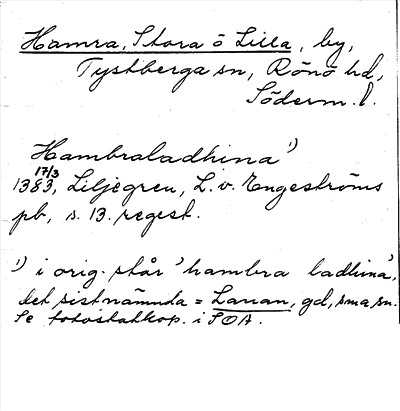 Hamra, Stora o Lilla, by,
Tystberga sn, Rönö hd,
Söderm. l.
Hambraladhina¹)
17/3
1383, Liljegren, L. v. Engeströms
pb, s. 13. regest.
¹) i orig. står 'hambra ladhina',
det sistnämnda = Lanan, gd, sma sn.
Se fotostatkop. i SOA.